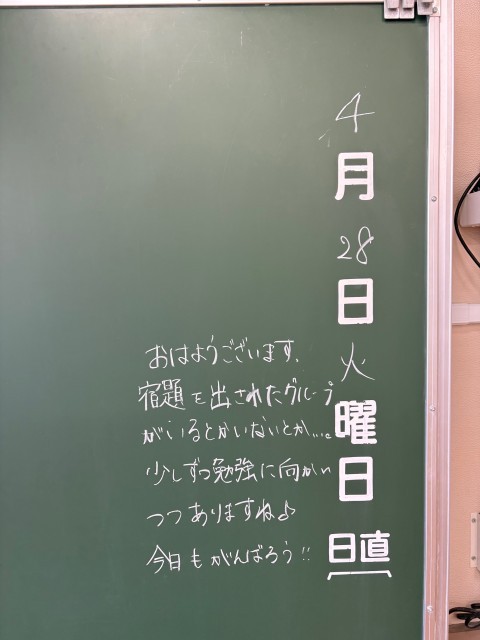 4月28日火曜日
日直
おはようございます。
宿題を出されたグループ
がいるとかいないとか…。
少しずつ勉強に向かい
つつありますね♪
今日もがんばろう!!